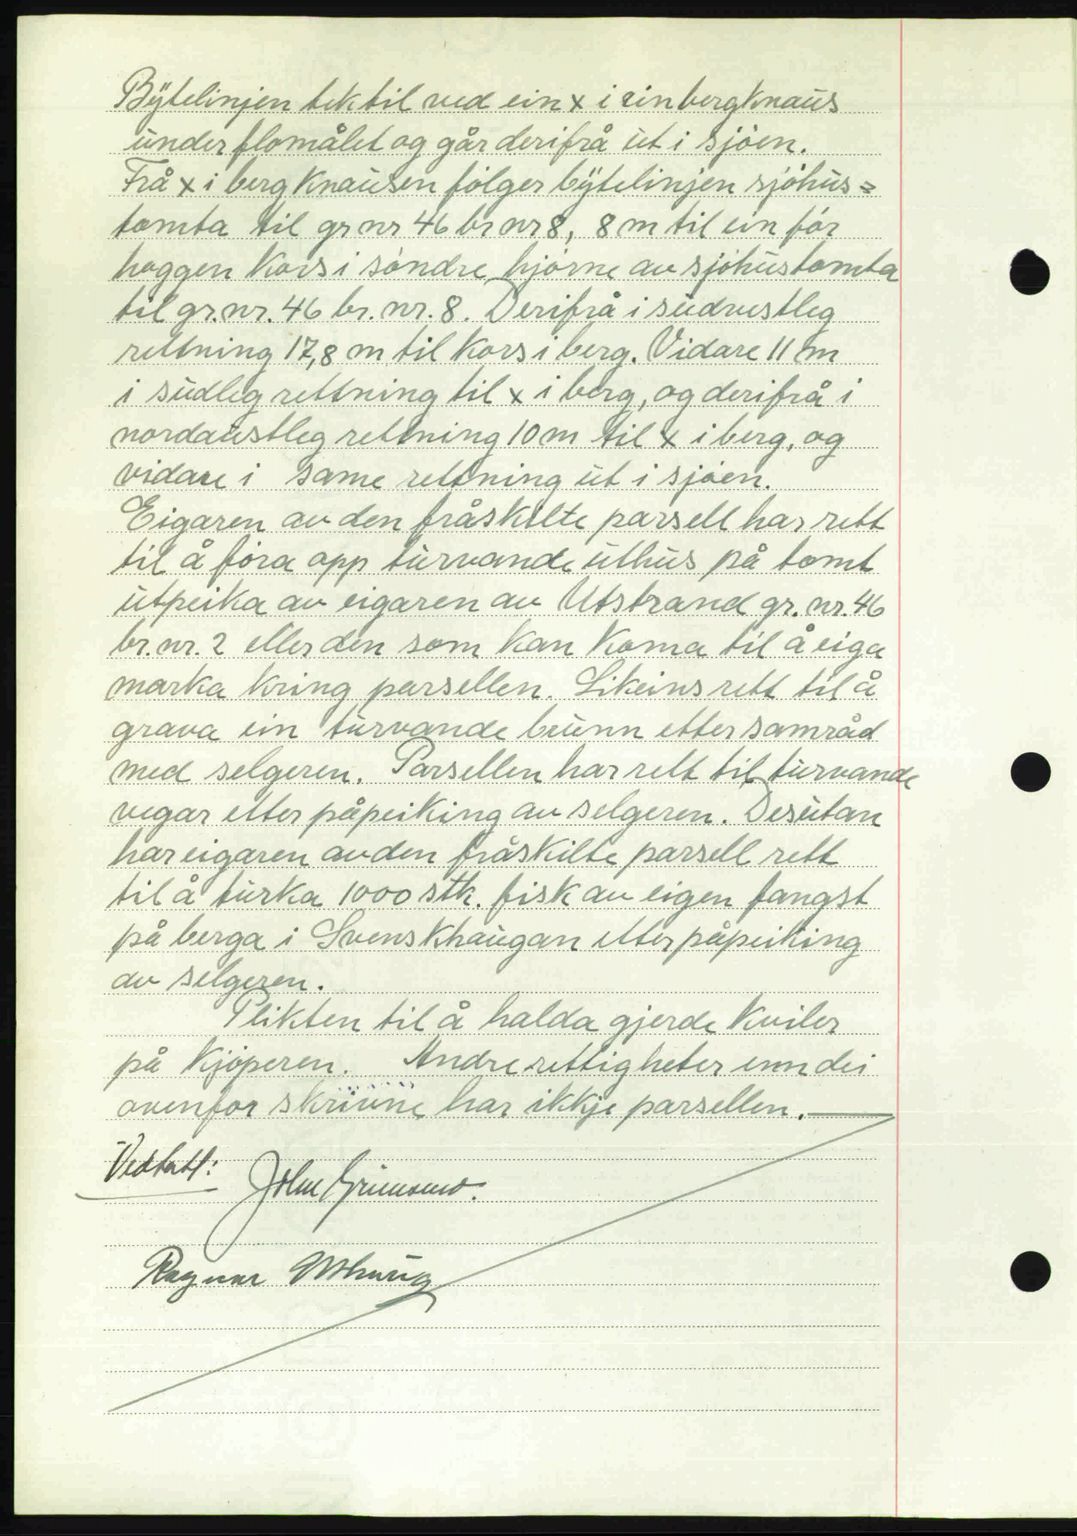 Bytelinjen tek til ved ein x i ein bergknaus
under flomålet og går derifrå ut i sjøen.
Frå x i bergknausen følger bytelinjen sjøhus=
tomta til gr nr 46 br nr 8, 8 m til ein før
hoggen kors i søndre hjørne av sjøhustomta
til gr. nr. 46 br. nr. 8. Derifrå i sudvestleg
rettning 17,8 m til kors i berg. Vidare 11 m
i sudleg rettning til x i berg, og derifrå i
nordaustleg rettning 10 m til x i berg, og
vidare i same rettning ut i sjøen.
Eigaren av den fråskilte parsell har rett
til å føra opp turvande uthus på tomt
utpeika av eigaren av Utstrand gr. nr. 46
br. nr. 2 eller den som kan koma til å eiga
marka kring parsellen. Likeins rett til å
grava ein turvande brunn etter samråd
med selgeren. Parsellen har rett til turvande
vegar etter påpeiking av selgeren. Desutan
har eigaren av den fråskilte parsell rett
til å turka 1000 stk. fisk av eigen fangst
på berga i Svenskhaugan etter påpeiking
av selgeren.
Plikten til å halda gjerde kviler
på kjøperen. Andre rettigheter enn dei
ovenfor skrivne har ikkje parsellen.
Vedtatt:
John Grimsmo.
Ragnar